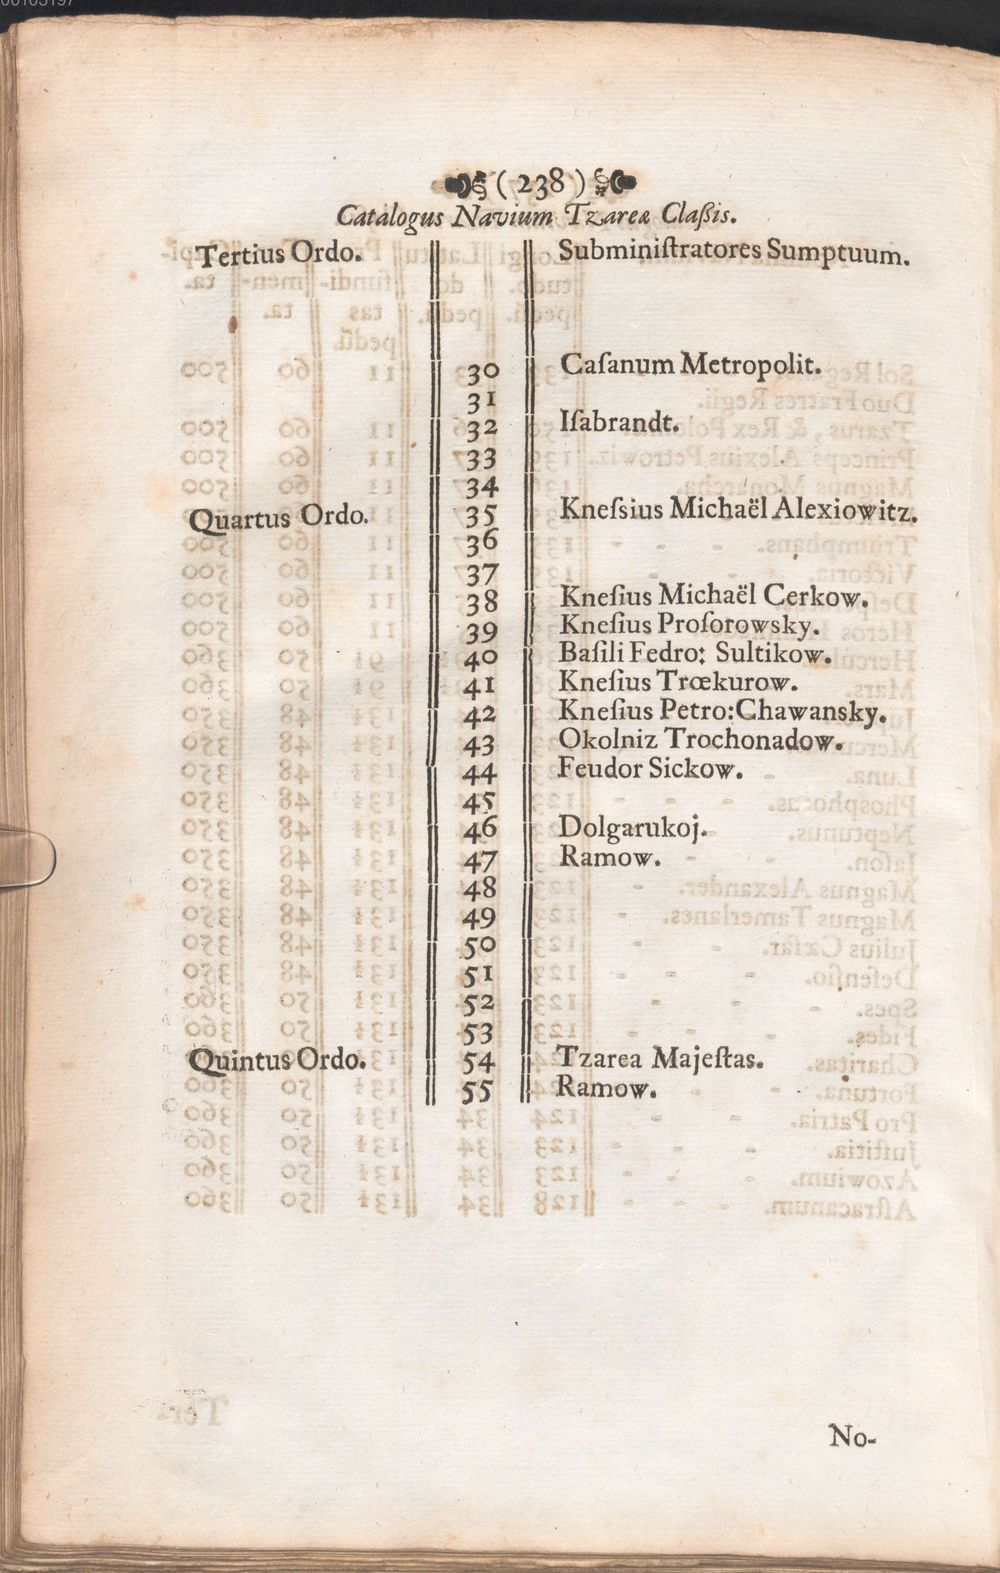 (238)
Catalogus Navium Tzareæ Claſsis.
Tertius Ordo. Subminiſtratores Sumptuum.
30 Caſanum Metropolit.
31
32 Iſabrandt.
33
34
Quartus Ordo. 35 Kneſsius Michaël Alexiowitz.
36
37
38 Kneſius Michaël Cerkow.
39 Kneſius Proſorowsky.
40 Baſili Fedro: Sultikow.
41 Kneſius Trœkurow.
42 Kneſius Petro: Chawansky.
43 Okolniz Trochonadow.
44 Feudor Sickow.
45
46 Dolgarukoj.
47 Ramow.
48
49
50
51
52
53
Quintus Ordo. 54 Tzarea Majeſtas.
55 Ramow.
No-